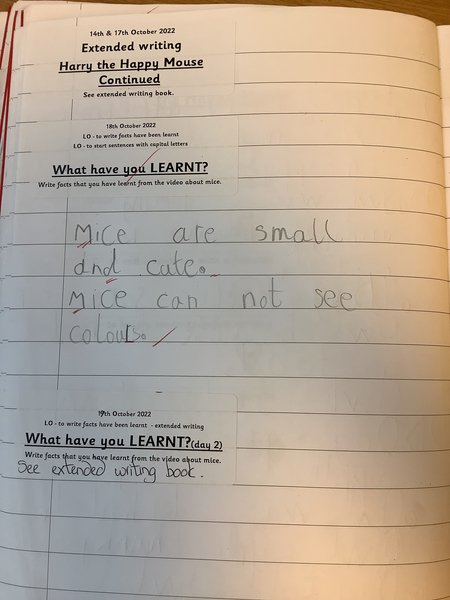 14th & 17th October 2022
Extended writing
Harry the Happy Mouse
Continued
See extended writing book.
18th October 2022
LO - to write facts have been learnt
LO - to start sentences with capital letters
What have you LEARNT?
Write facts that you have learnt from the video about mice.
Mice are small
and cute.
Mice can not see
colours.
19th October 2022
LO - to write facts have been learnt - extended writing
What have you LEARNT?(day 2)
Write facts that you have learnt from the video about mice.
See extended writing book.